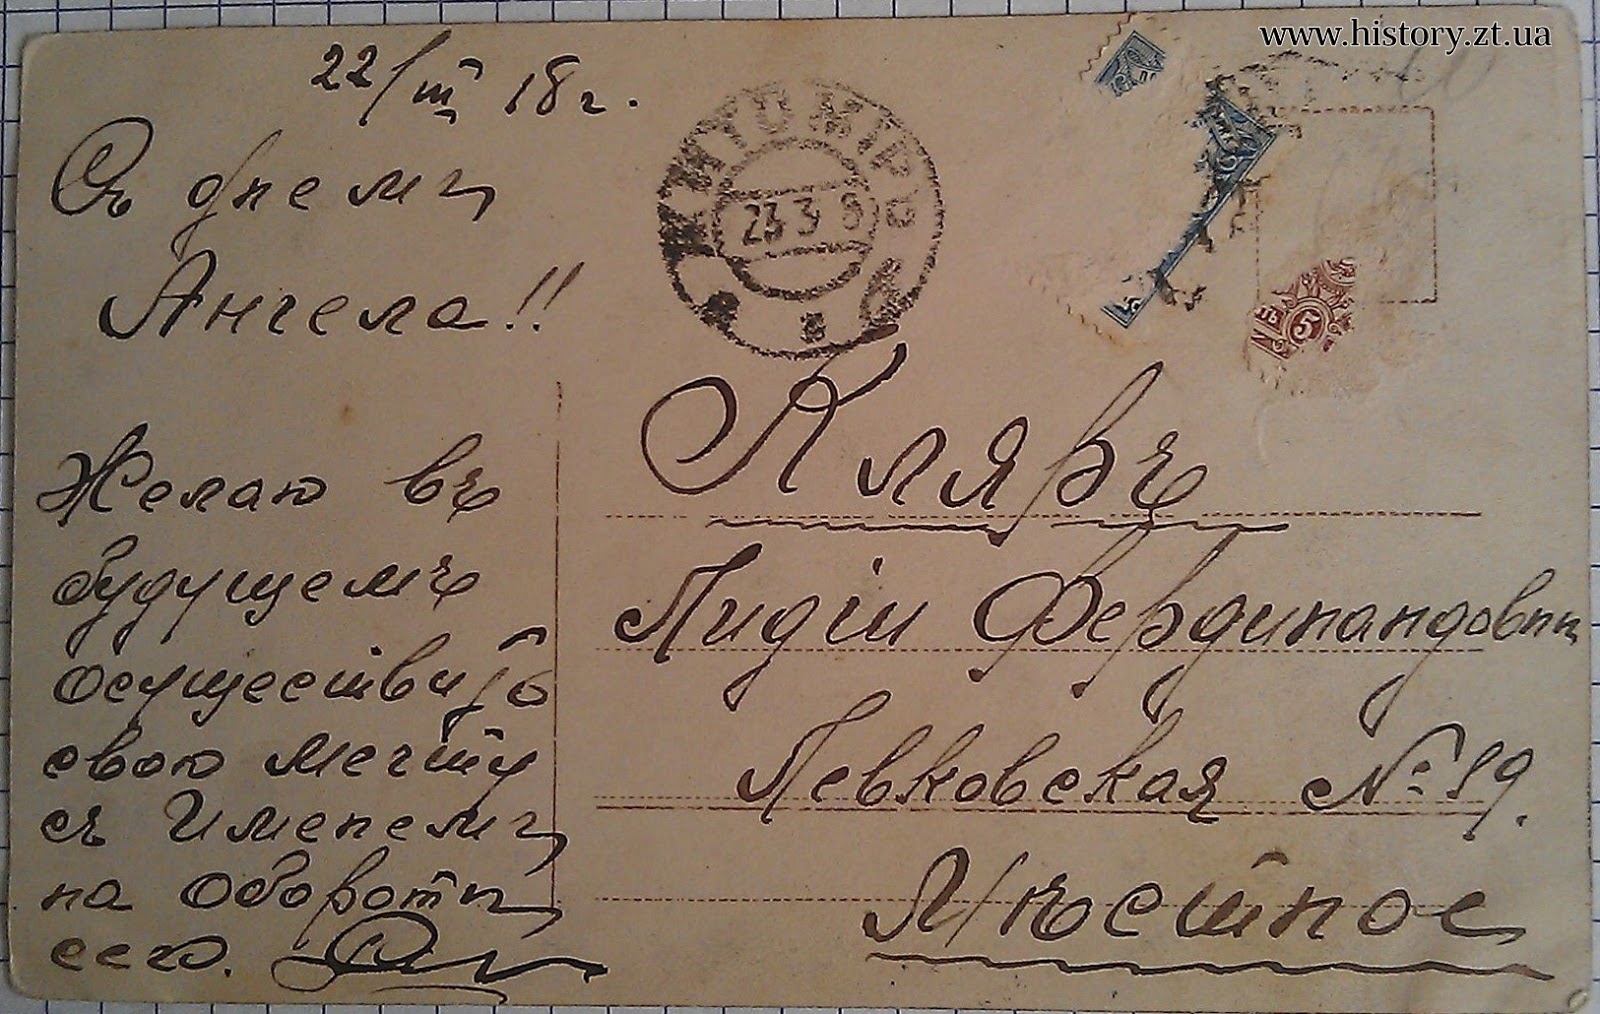 www.history.zt.ua
22/III 18 г.
Съ днемъ
Ангела!!
Желаю въ
будущемъ
осуществить
свою мечту
съ Именемъ
на оборотѣ
сего.
ЖИТОМИРЪ
23 3 8
5
Клярѣ
Лидіи Фердинандовнѣ
Левковская № 19.
Мѣстное